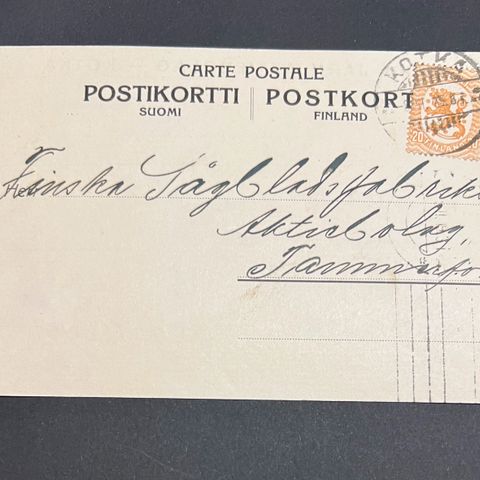 CARTE POSTALE
POSTIKORTTI | POSTKORT
SUOMI FINLAND
KOTKA
20
Finska Sågbladsfabrike
Aktiebolag,
Tammerfo